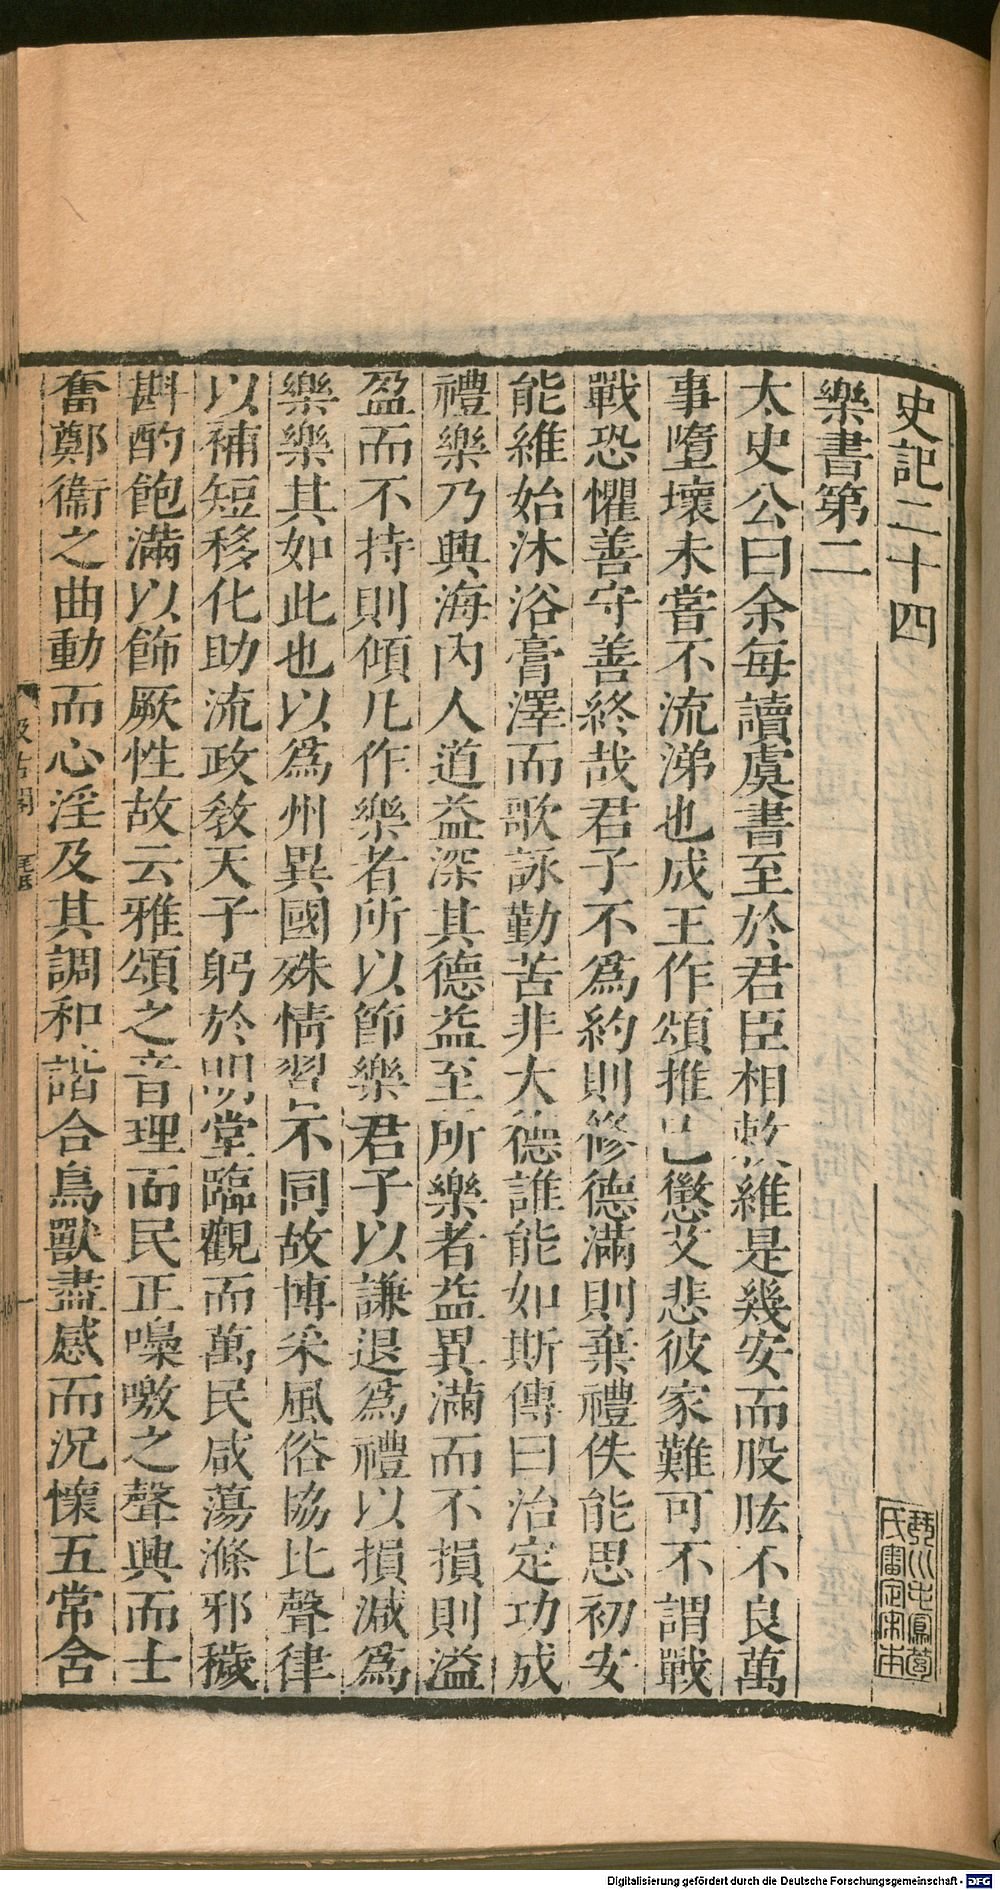 史記二十四
樂書第二
太史公曰余每讀虞書至於君臣相敕維是幾安而股肱不良萬
事墮壞未嘗不流涕也成王作頌推己懲艾悲彼家難可不謂戰
戰恐懼善守善終哉君子不爲約則修德滿則棄禮佚能思初安
能維始沐浴膏澤而歌詠勤苦非大德誰能如斯傳曰治定功成
禮樂乃興海內人道益深其德益至所樂者益異滿而不損則溢
盈而不持則傾凢作樂者所以節樂君子以謙退爲禮以損減爲
樂樂其如此也以爲州異國殊情習不同故博采風俗協比聲律
以補短移化助流政教天子躬於明堂臨觀而萬民咸蕩滌邪穢
斟酌飽滿以飾厥性故云雅頌之音理而民正嘄噭之聲興而士
奮鄭衞之曲動而心淫及其調和諧合鳥獸盡感而況懷五常含
琴川毛鳳苞
氏審定宋本
汲古閣
Digitalisierung gefördert durch die Deutsche Forschungsgemeinschaft - DFG